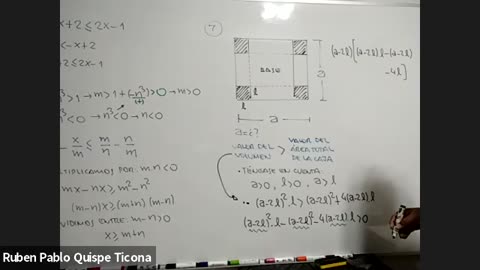 x+2 ≤ 2x-1
< -x+2
+2 ≤ 2x-1
³>1 → m>1 + (-n³)/(+) > 0 → m>0
n³<0 → n<0
x/m ≤ m/n - n/m
LTIPLICAMOS POR: m.n<0
mx - nx ≥ m²-n²
(m-n)x ≥ (m+n)(m-n)
VIDIMOS ENTRE: m-n>0
x ≥ m+n
7
BASE
l
a
a
a=¿?
VALOR DEL VOLUMEN > VALOR DEL ÁREA TOTAL DE LA CAJA
• TÉNGASE EN CUENTA:
a>0, l>0, a>l
(a-2l)².l > (a-2l)²+4(a-2l)l
(a-2l)².l - (a-2l)² - 4(a-2l).l > 0
(a-2l)[(a-2l)l-(a-2l)
-4l]
Ruben Pablo Quispe Ticona